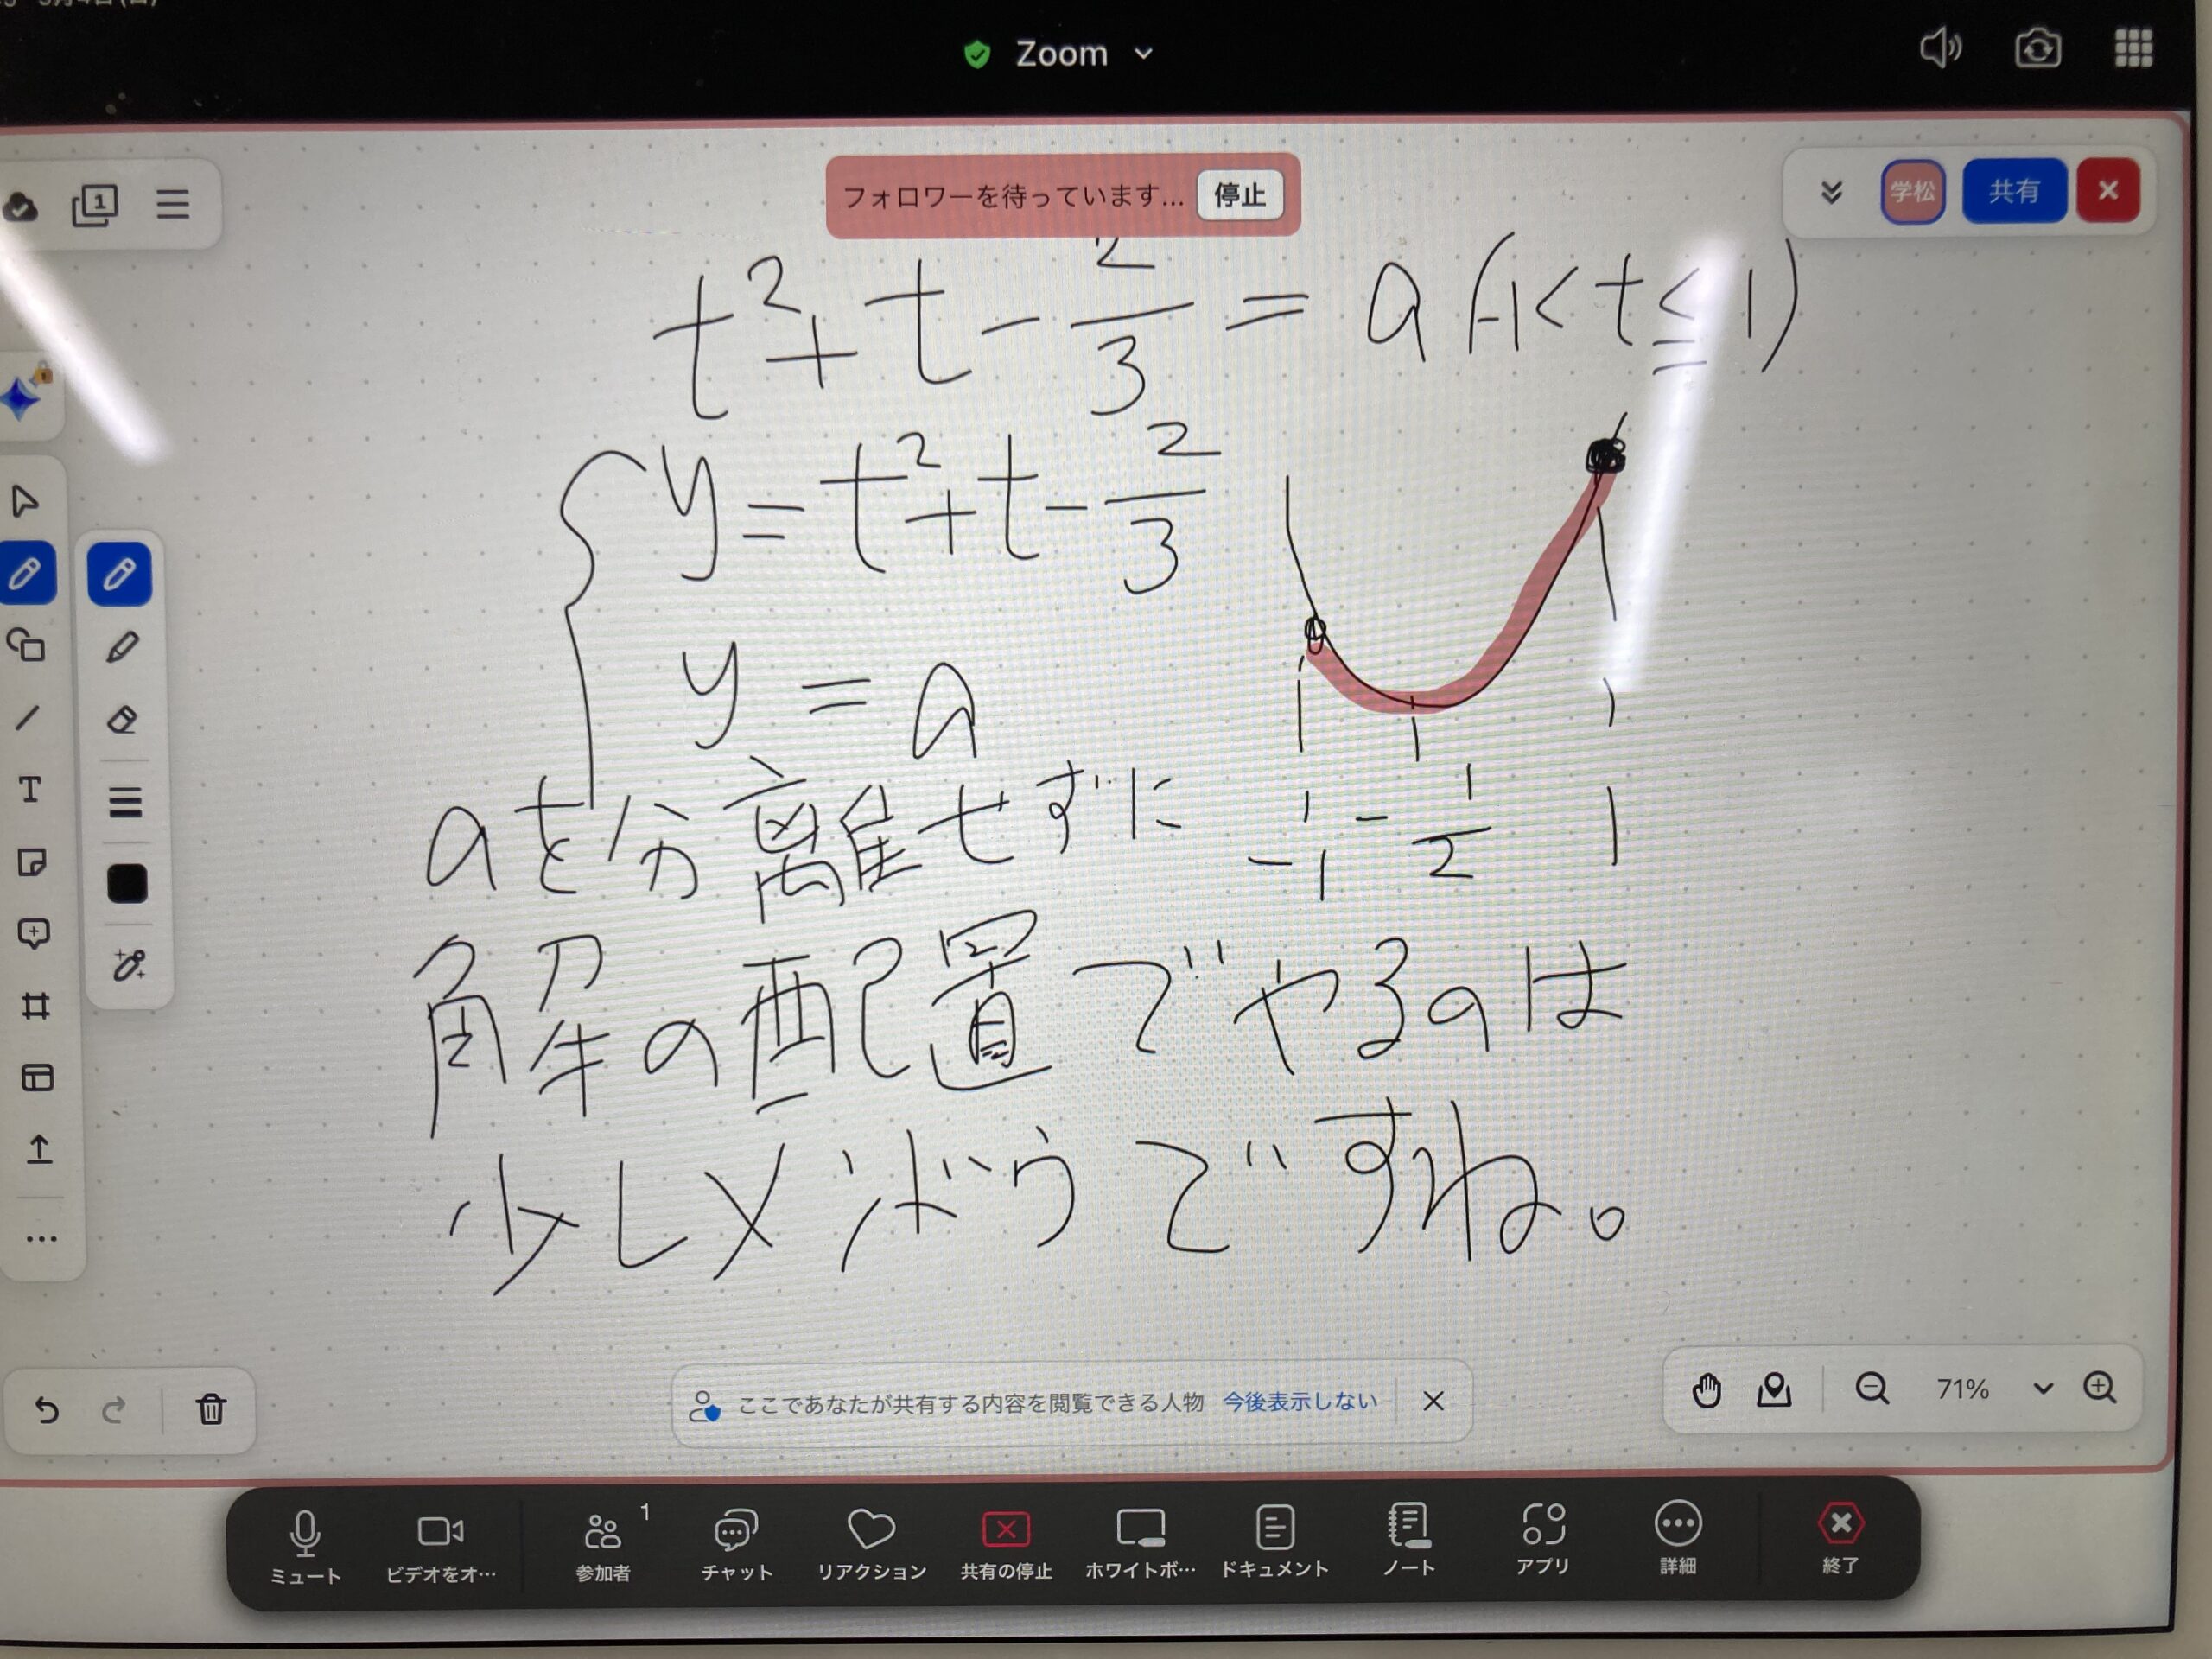 Zoom
1
フォロワーを待っています... 停止
学松
共有
t²+t-2/3=a(-1<t≦1)
y=t²+t-2/3
y=a
-1 -1/2 1
aを分離せずに
解の配置でやるのは
少しめんどうですね。
T
ここであなたが共有する内容を閲覧できる人物 今後表示しない
71%
ミュート
ビデオをオ…
参加者 1
チャット
リアクション
共有の停止
ホワイトボ…
ドキュメント
ノート
アプリ
詳細
終了